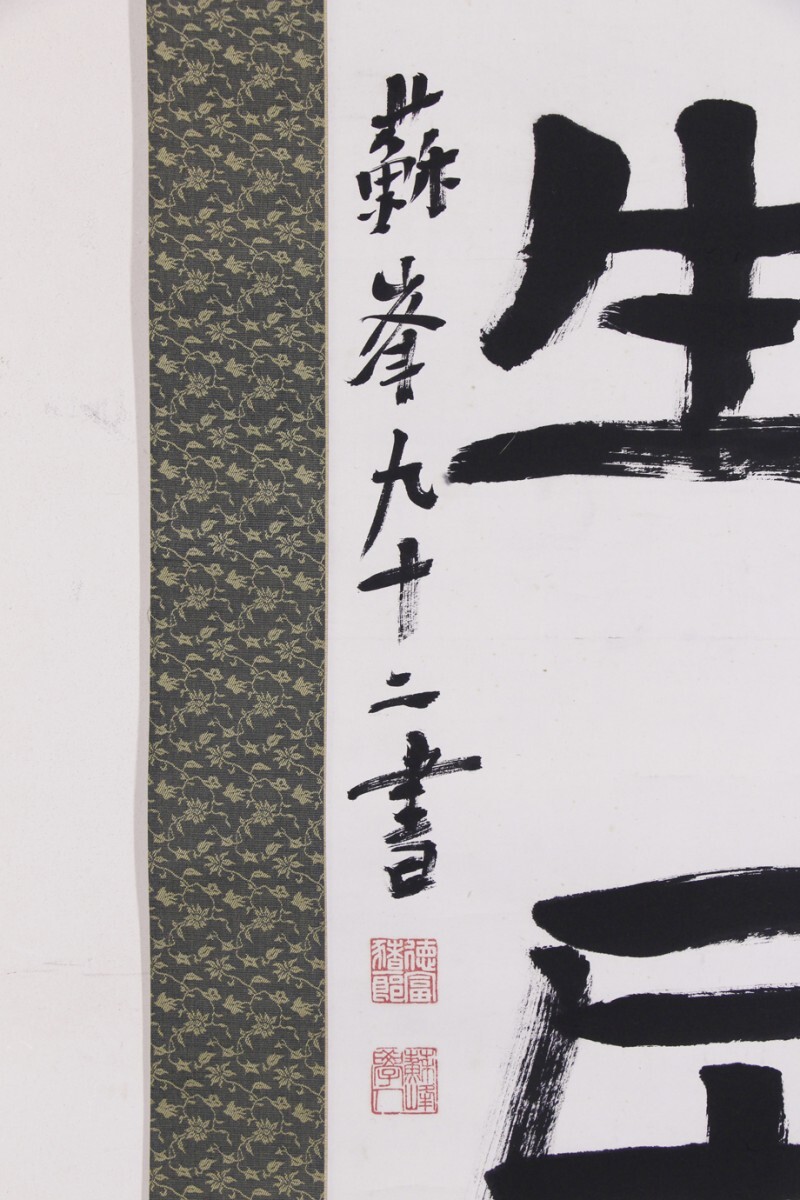 生
蘇峯九十二書
徳富
猪郎
蘇峰
學人